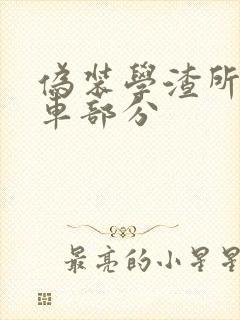 偽裝學渣所
車部分
最亮的小星星